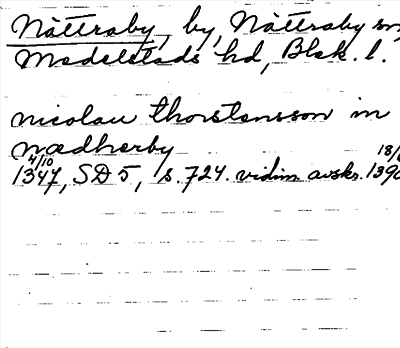 Nättraby, by, Nättraby sn
Medelstads hd, Blek. l.
nicolau thorstensson in
nædherby
4/10 18/
1347, SD 5, s. 724. vidim. avskr. 1390